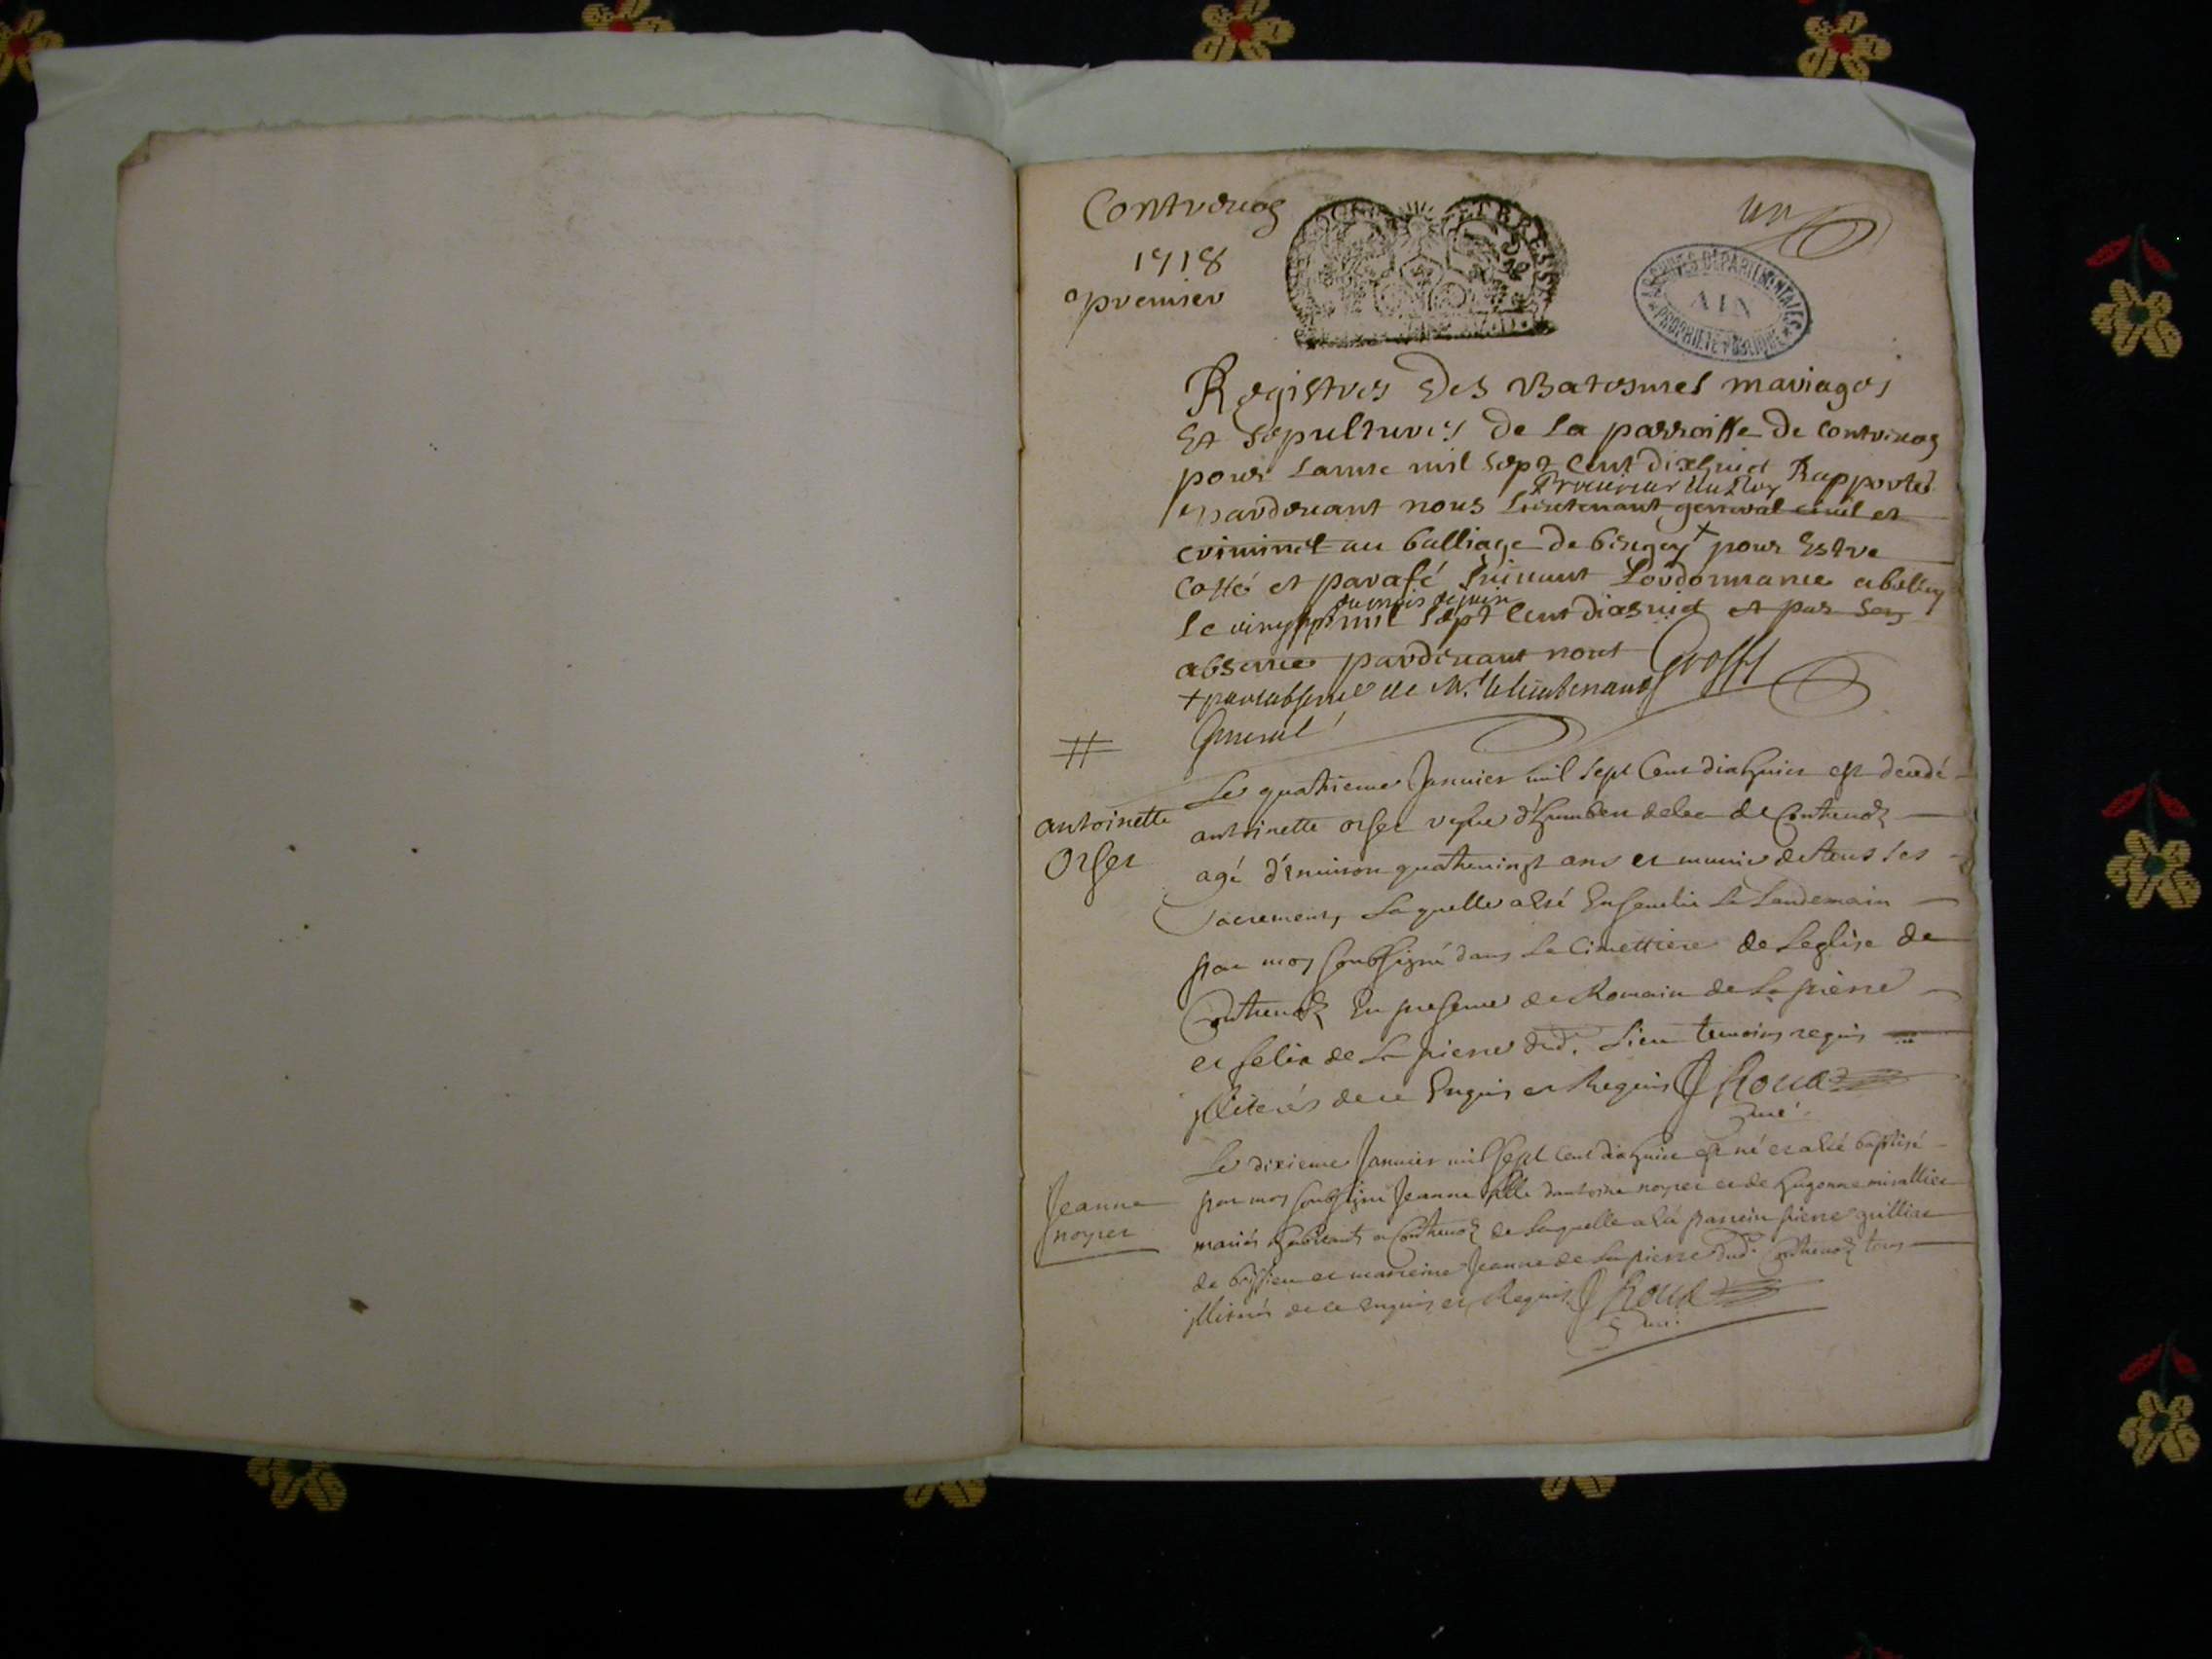 Contrevos
un
1718
premier
ARCHIVES DEPARTEMENTALES
AIN
PROPRIETE PUBLIQUE
Registres Des Batesmes mariages
Et sepultures de la parroisse de Contrevos
pour lanne mil sept Cent dixhuict Rapportés
Procureur du Roy
pardevant nous Lieutenant general civil et
criminel au balliage de beugey + pour Estre
Cotté et parafé suivant Lordonnance a belley
du mois de juin
le mil sept Cent dixhuict et par son
absence pardevant nous Grosset
+ pour labsence de Mr. le lieutenant
General
Le quatrieme Janvier mil sept Cent dixhuict est decedé
antoinette
Orset
antoinette orset vesve d'humbert de Contrevoz
agé d'environ quatrevingt ans et munie de tous les
sacremens, Laquelle a esté Ensevelie Le Landemain
par moy soubsigné dans Le Cimettiere de Leglise de
Contrevoz En presence de Romain de La pierre
et felix de La pierre dud. Lieu temoins requis
illiterés de ce Enquis et Requis J Roux
Curé
Le dixieme Janvier mil sept Cent dixhuict est né et a esté baptisé
Jeanne
noyret
par moy soubsigné Jeanne fille dantoine noyret et de hugonne
mariés habitants a Contrevoz de Laquelle a été parrein pierre
de et marreine Jeanne de La pierre dud. Contrevoz tous
illiterés de ce enquis et Requis J Roux
Curé.